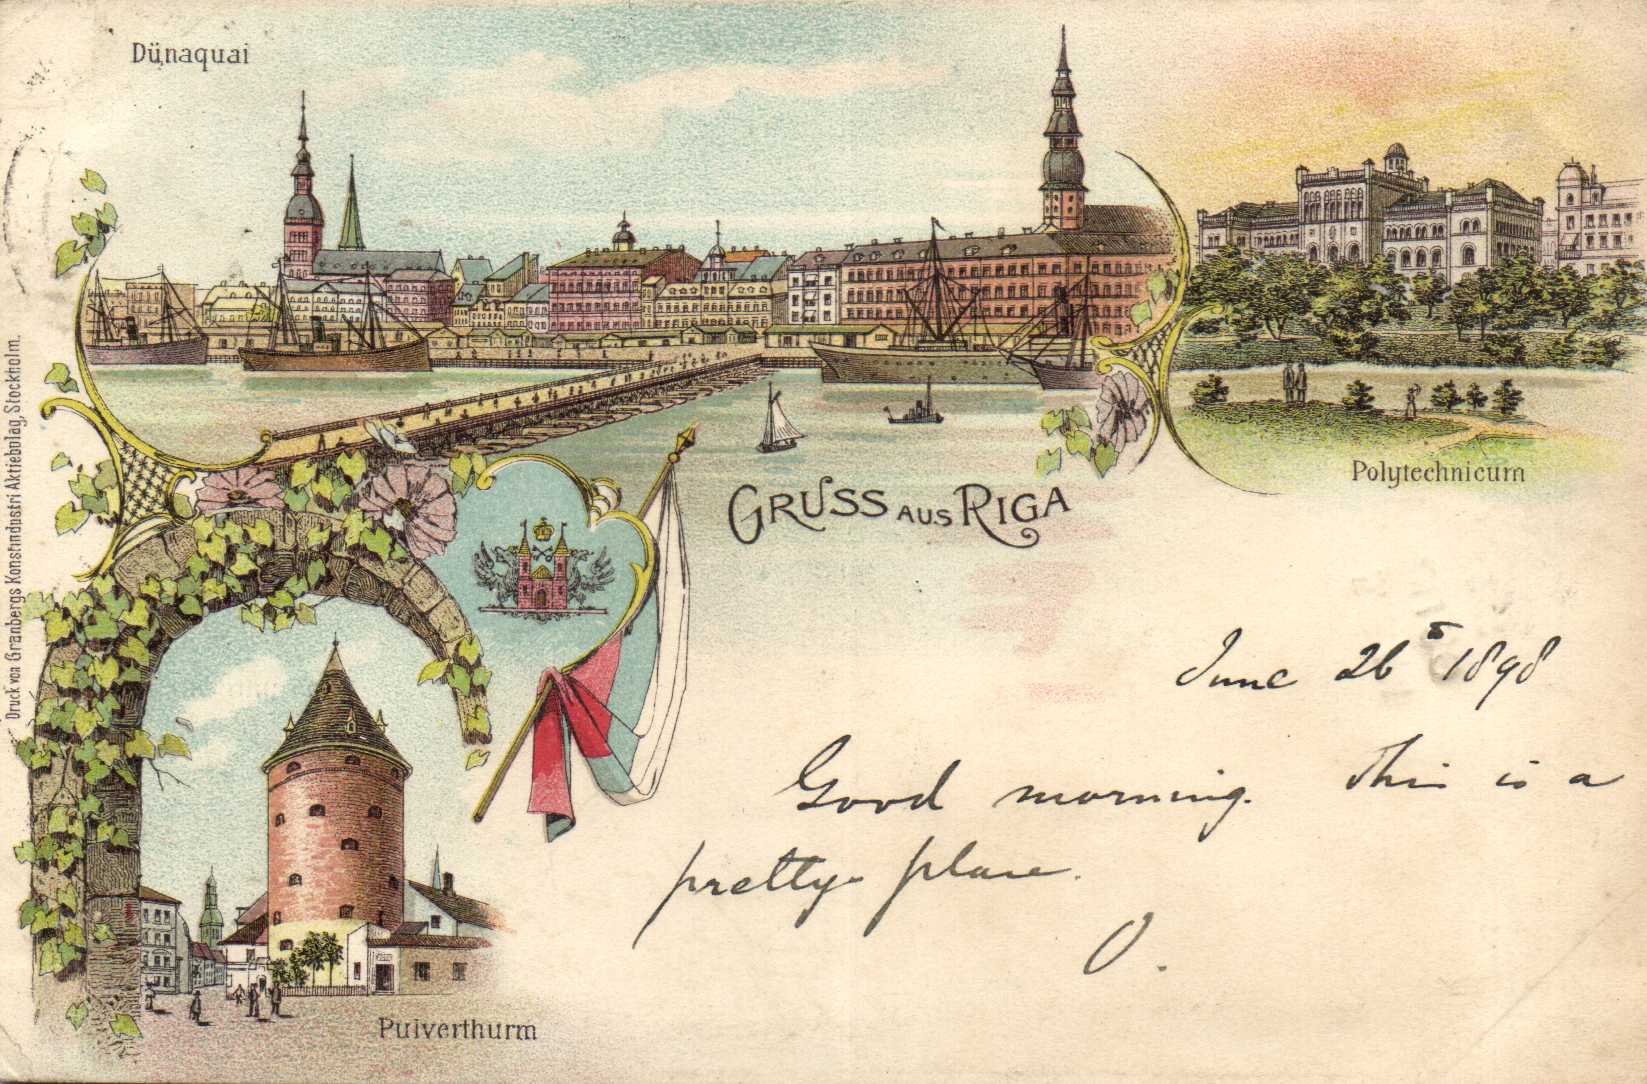 Dünaquai
Polytechnicum
GRUSS AUS RIGA
Pulverthurm
Druck von Granbergs Konstindustri Aktiebolag, Stockholm.
June 26th 1898
Good morning. This is a
pretty place.
O.